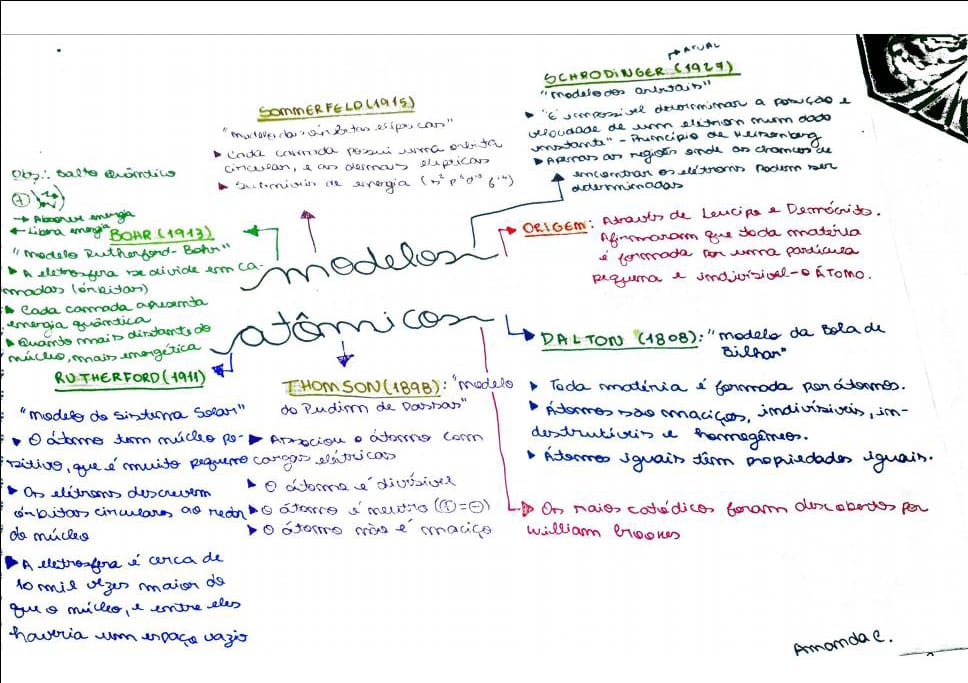 modelos
atômicos
ORIGEM: Através de Leucipo e Demócrito.
Afirmaram que toda matéria
é formada por uma partícula
pequena e indivisível-o ÁTOMO.
DALTON (1808): "modelo da Bola de
Bilhar"
▸ Toda matéria é formada por átomos.
▸ Átomos são maciços, indivisíveis, in-
destrutíveis e homogêneos.
▸ Átomos iguais têm propriedades iguais.
▸ Os raios catódicos foram descobertos por
William Crookes
THOMSON (1898): "modelo
do Pudim de Passas"
▸ Associou o átomo com
cargas elétricas
▸ O átomo é divisível
▸ O átomo é neutro (⊕=⊖)
▸ O átomo não é maciço
RUTHERFORD (1911)
"modelo do Sistema Solar"
▸ O átomo tem núcleo po-
sitivo, que é muito pequeno
▸ Os elétrons descrevem
órbitas circulares ao redor
do núcleo
▸ A eletrosfera é cerca de
10 mil vezes maior do
que o núcleo, e entre eles
haveria um espaço vazio
Obs.: Salto Quântico
→ Absorve energia
← Libera energia
BOHR (1913)
"modelo Rutherford-Bohr"
▸ A eletrosfera se divide em ca-
madas (órbitas)
▸ Cada camada apresenta
energia quântica
▸ Quanto mais distante do
núcleo, mais energética
SOMMERFELD (1915)
"modelo das órbitas elípticas"
▸ Cada camada possui uma órbita
circular, e as demais elípticas
▸ Subníveis de energia (s² p⁶ d¹⁰ f¹⁴)
→ ATUAL
SCHRODINGER (1927)
"modelo dos orbitais"
▸ "É impossível determinar a posição e
velocidade de um elétron num dado
instante" - Princípio de Heisenberg
▸ Apenas as regiões onde as chances de
encontrar os elétrons podem ser
determinadas
Amanda C.